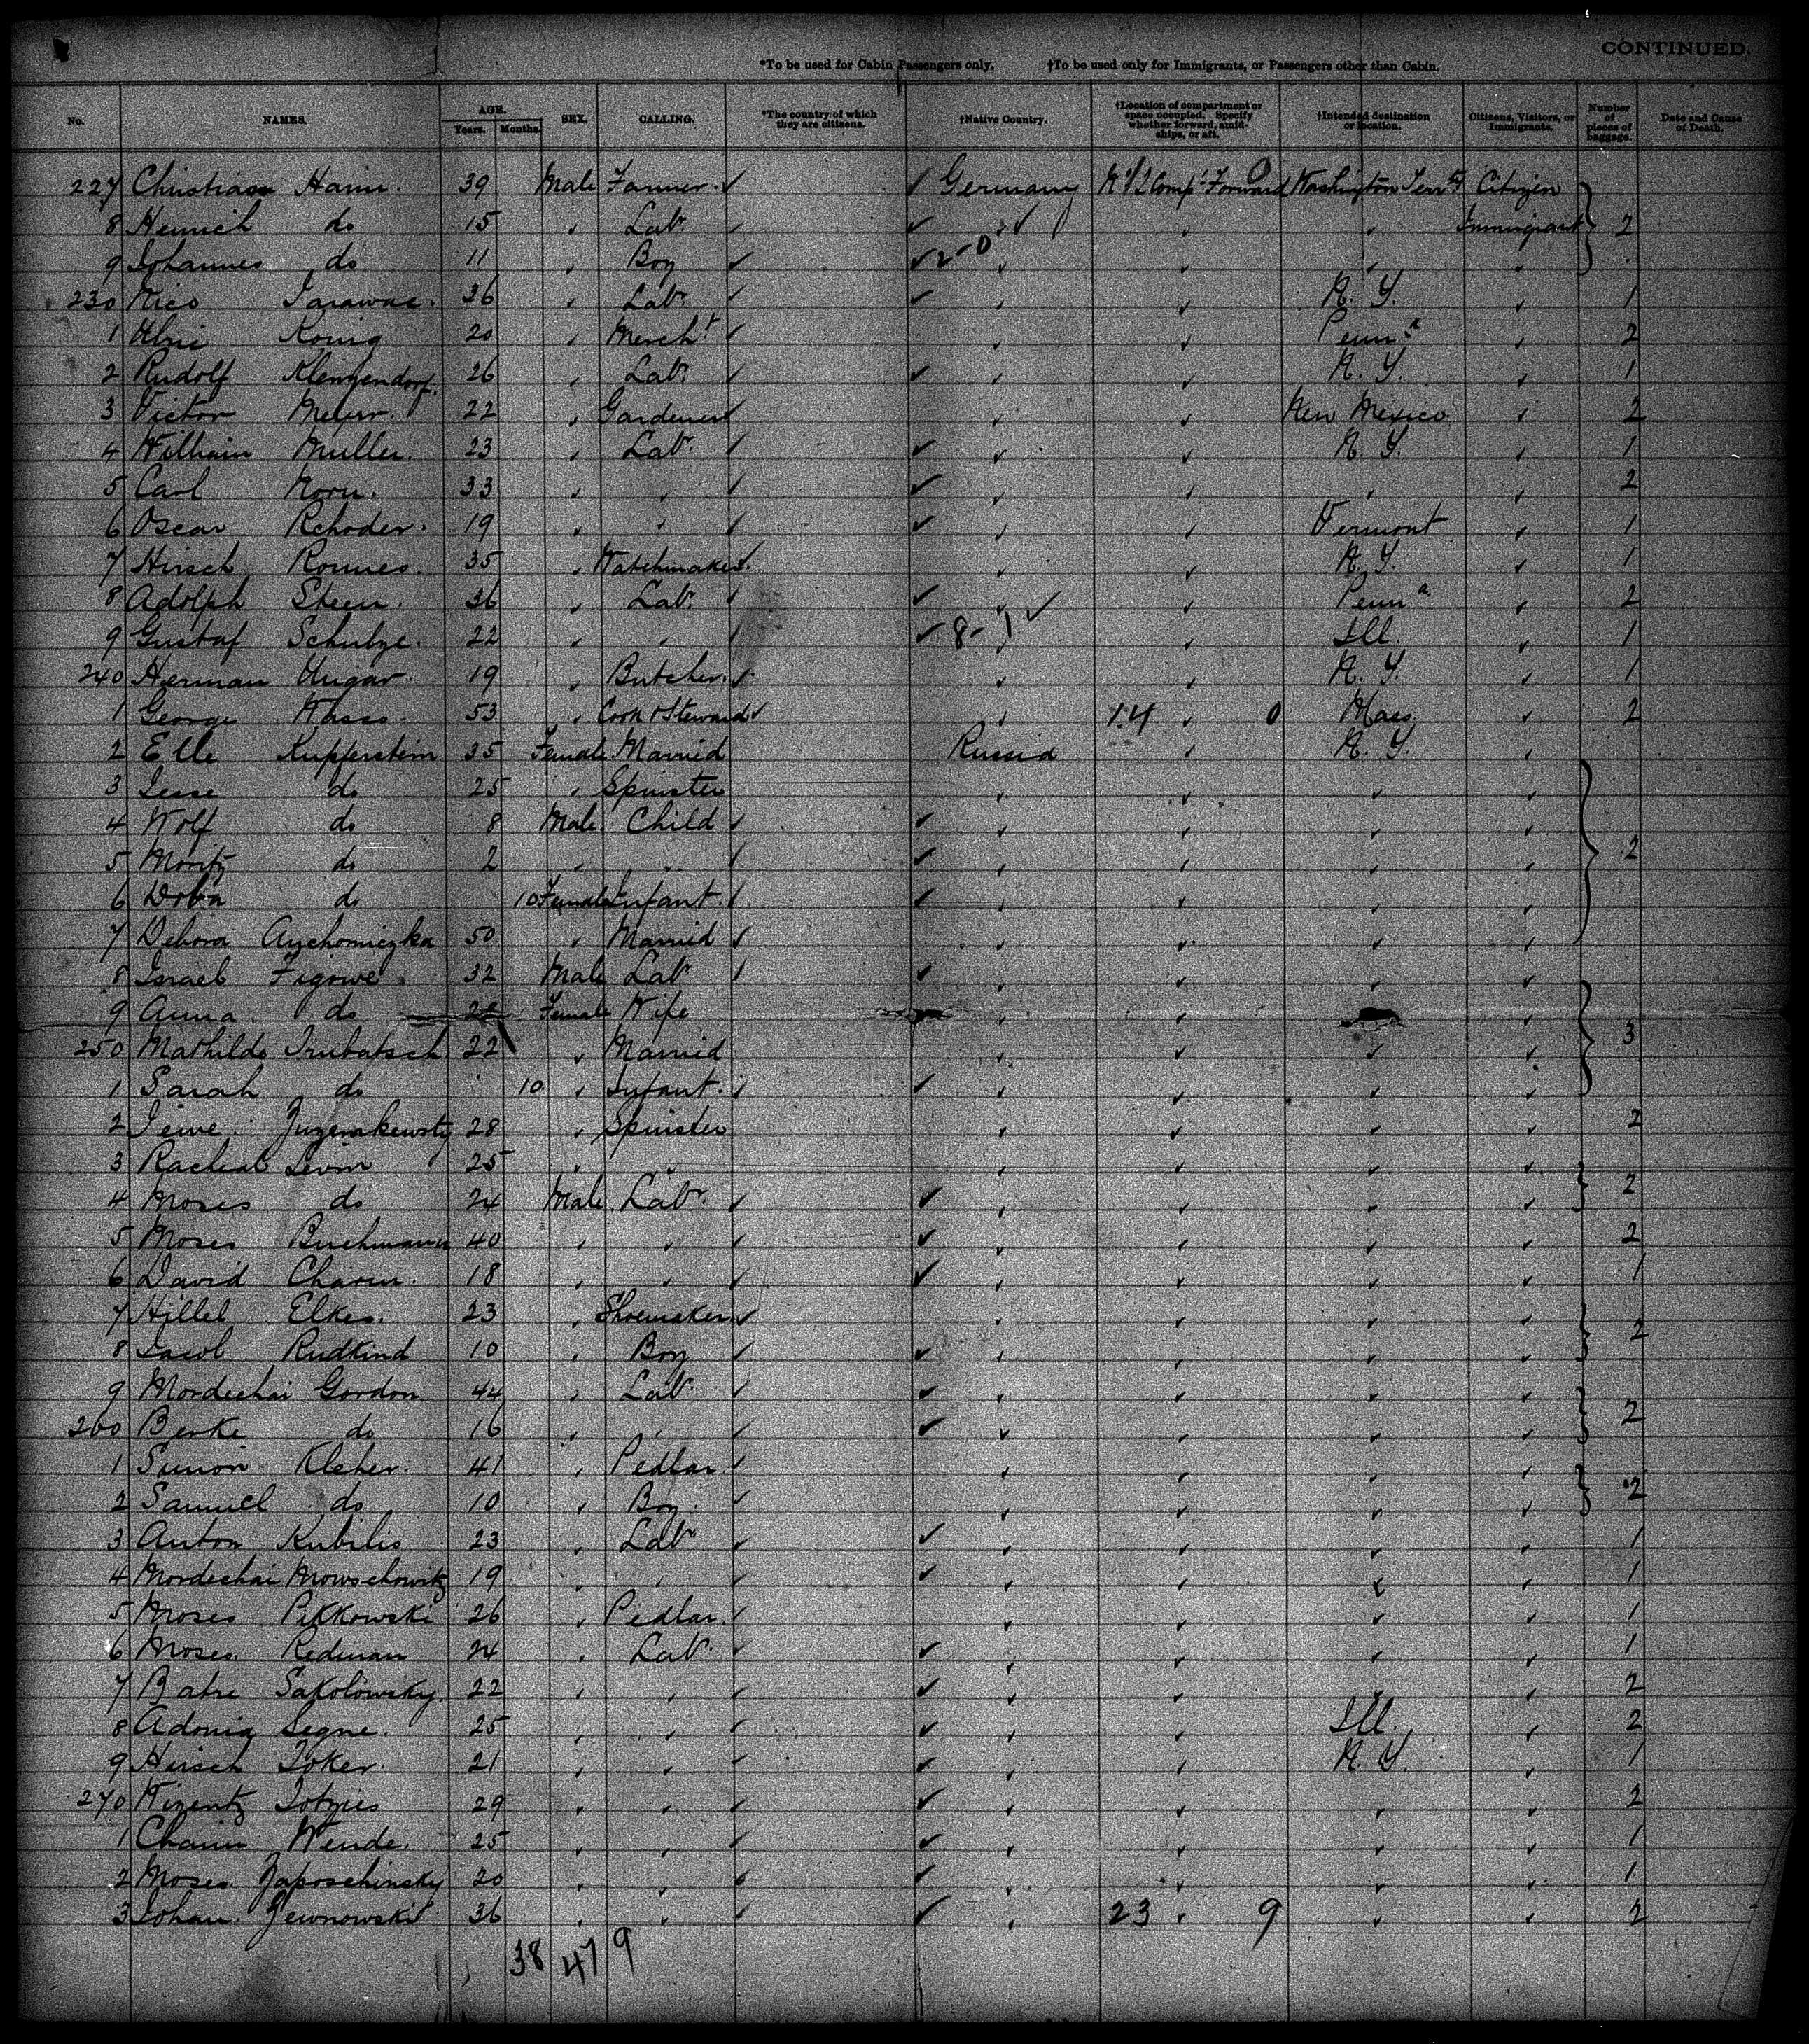 CONTINUED.
*To be used for Cabin Passengers only. †To be used only for Immigrants, or Passengers other than Cabin.
No. NAMES. AGE. Years. Months. SEX. CALLING. *The country of which they are citizens. †Native Country. †Location of compartment or space occupied. Specify whether forward, amidships, or aft. †Intended destination or location. Citizens, Visitors, or Immigrants. Number of pieces of baggage. Date and Cause of Death.
227 Christian Haim. 39 Male Farmer. Germany Nº 1 Comp't Forward Washington Terr'y Citizen
8 Heinrich do 15 Labr. Immigrant 2
9 Johannes do 11 Boy 2-0
230 Nico 36 Labr. N. Y. 1
1 König 20 Mercht Penna 2
2 Rudolf Klenzendorf. 26 Labr. N. Y. 1
3 Victor 22 Gardener New Mexico 2
4 William Muller. 23 Labr. N. Y. 1
5 Carl Horn. 33 2
6 Oscar Rehoder. 19 Vermont 1
7 Hirsch Ronnes. 35 Watchmaker. N. Y. 1
8 Adolph Steen. 36 Labr. Penna 2
9 Gustaf Schulze. 22 8-1 Ill. 1
240 Herman Ungar. 19 Butcher. N. Y. 1
1 George 53 Cook & Steward 14 0 Mass 2
2 Elle Kupferstein 35 Female Married Russia N. Y.
3 do 25 Spinster
4 Wolf do 8 Male Child
5 Moritz do 2 2
6 Doba do 10 Female Infant.
7 Debora 50 Married
8 Israel Figowe 32 Male Labr
9 Anna do Female Wife
250 Mathilde Trubatsch 22 Married 3
1 Sarah do 10 Infant.
2 28 Spinster 2
3 Racheal Levin 25
4 Moses do 24 Male Labr. 2
5 Moses Buchmann 40 2
6 David Charin. 18 1
7 Hillel Elkes. 23 Shoemaker
8 Jacob Rudkind 10 Boy 2
9 Mordechai Gordon 44 Labr.
260 Berke do 16 2
1 Simon Kleher. 41 Pedlar.
2 Samuel do 10 Boy. 2
3 Anton Kubilis 23 Labr 1
4 Mordechai Mowschowitz 19 1
5 Moses Pikkowski 26 Pedlar. 1
6 Moses Redman 24 Labr. 1
7 Sakolowsky. 22 2
8 Segne. 25 Ill. 2
9 Hirsch Toker. 21 N. Y. 1
270 29 2
1 Chaim Wende. 25 1
2 Moses Zaposchinsky 20 1
3 Johan. 36 23 9 2
38 47 9